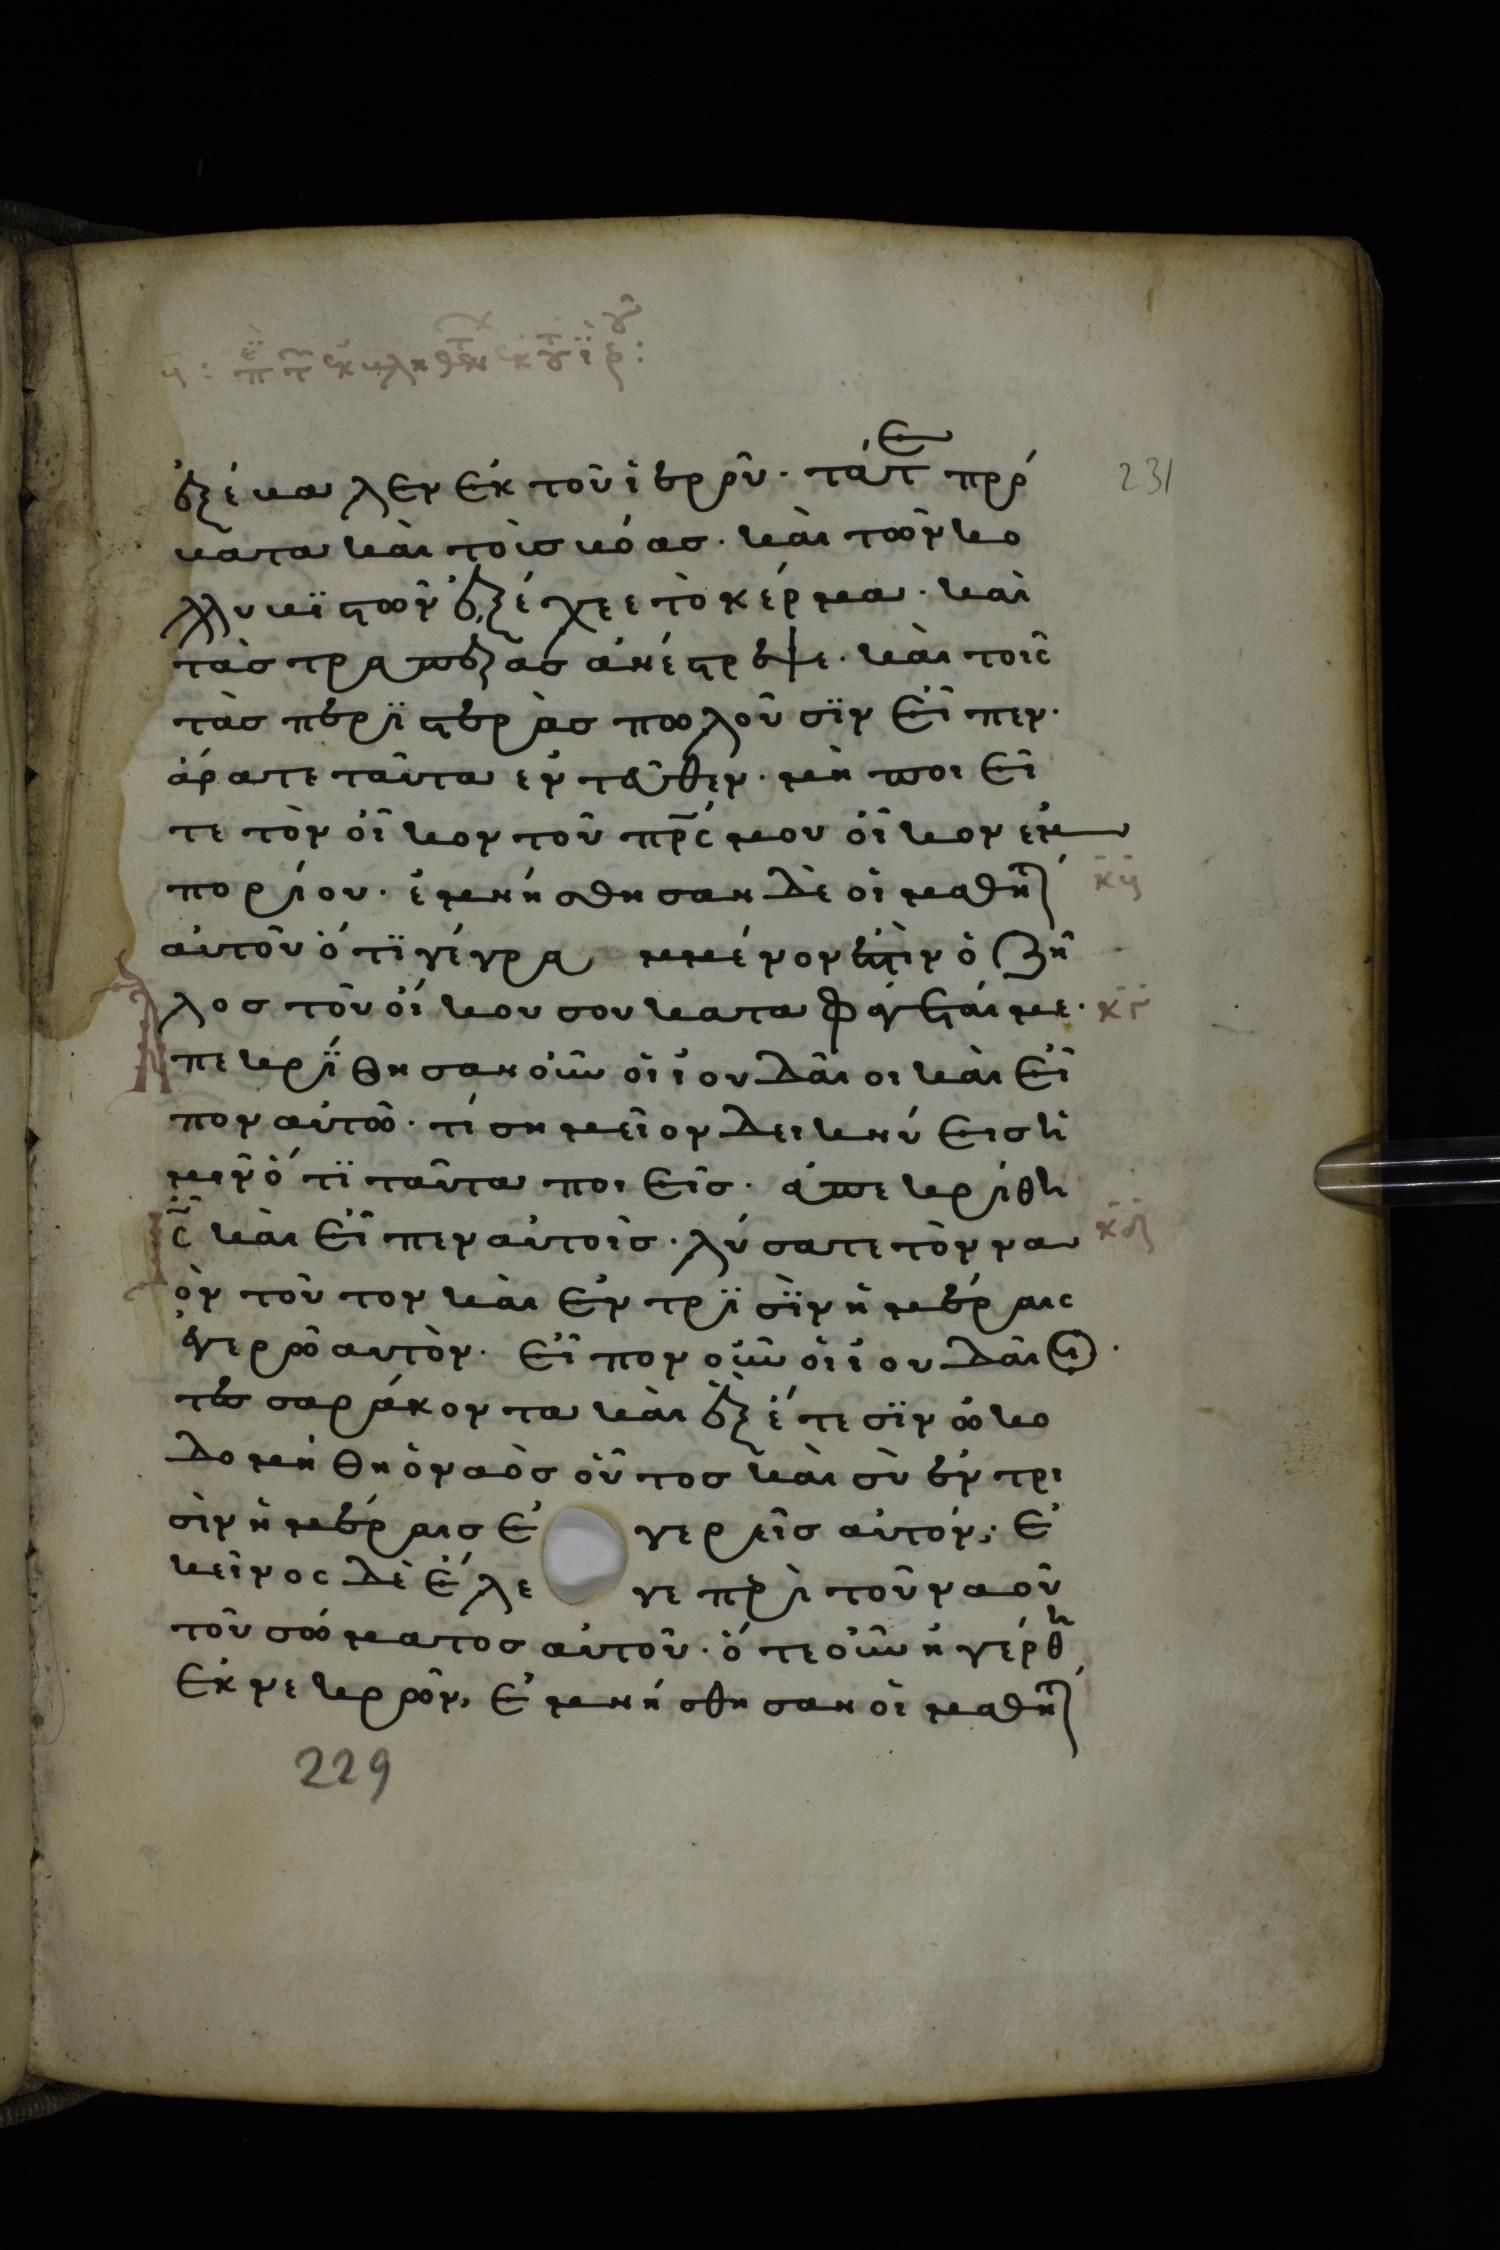 231
ἐξέβαλεν ἐκ τοῦ ἱεροῦ· τάτε πρό
βατα καὶ τοὺς βόας· καὶ τῶν κο
λλυβϊστῶν ἐξέχεε τὸ κέρμα· καὶ
τὰς τραπεζας ἀνέστρεψε· καὶ τοῖς
τὰς περϊστερὰς πωλοῦσϊν εἶπεν·
ἄρατε ταῦτα ἐντεῦθεν· μὴ ποιεῖ
τε τὸν οἶκον τοῦ πρς μου οἶκον ἐμ
πορίου· ἐμνήσθησαν δὲ οἱ μαθητ
αὐτοῦ ὅτϊ γεγραμμένον ἐστὶν ὁ ζῆ
λος τοῦ οἴκου σου καταφάγεταί με·
Ἀπεκρϊθησαν οὖν οἱ ἰουδαῖοι καὶ εἶ
πον αὐτῶ· τί σημεῖον δεικνύεις ἡ
μῖν ὅτϊ ταῦτα ποιεῖς· ἀπεκρίθη
Ις καὶ εἶπεν αὐτοῖς· λύσατε τὸν να
ὸν τοῦτον καὶ ἐν τρϊσὶν ἡμέραις
ἐγερῶ αυτὸν· εἶπον οὖν οἱ ἰουδαῖοι·
τεσσαράκοντα καὶ ἓξ ἔτεσϊν ὠκο
δομήθη ὁ ναὸς οὗτος καὶ σὺ ἐν τρι
σὶν ἡμέραις ἐγερεῖς αὐτόν; ἐ
κεῖνος δὲ ἔλεγε περὶ τοῦ ναοῦ
τοῦ σώματος αὐτοῦ· ὅτε οὖν ἠγέρθη
ἐκ νεκρῶν, ἐμνήσθησαν οἱ μαθητ
κγ
κδ
229